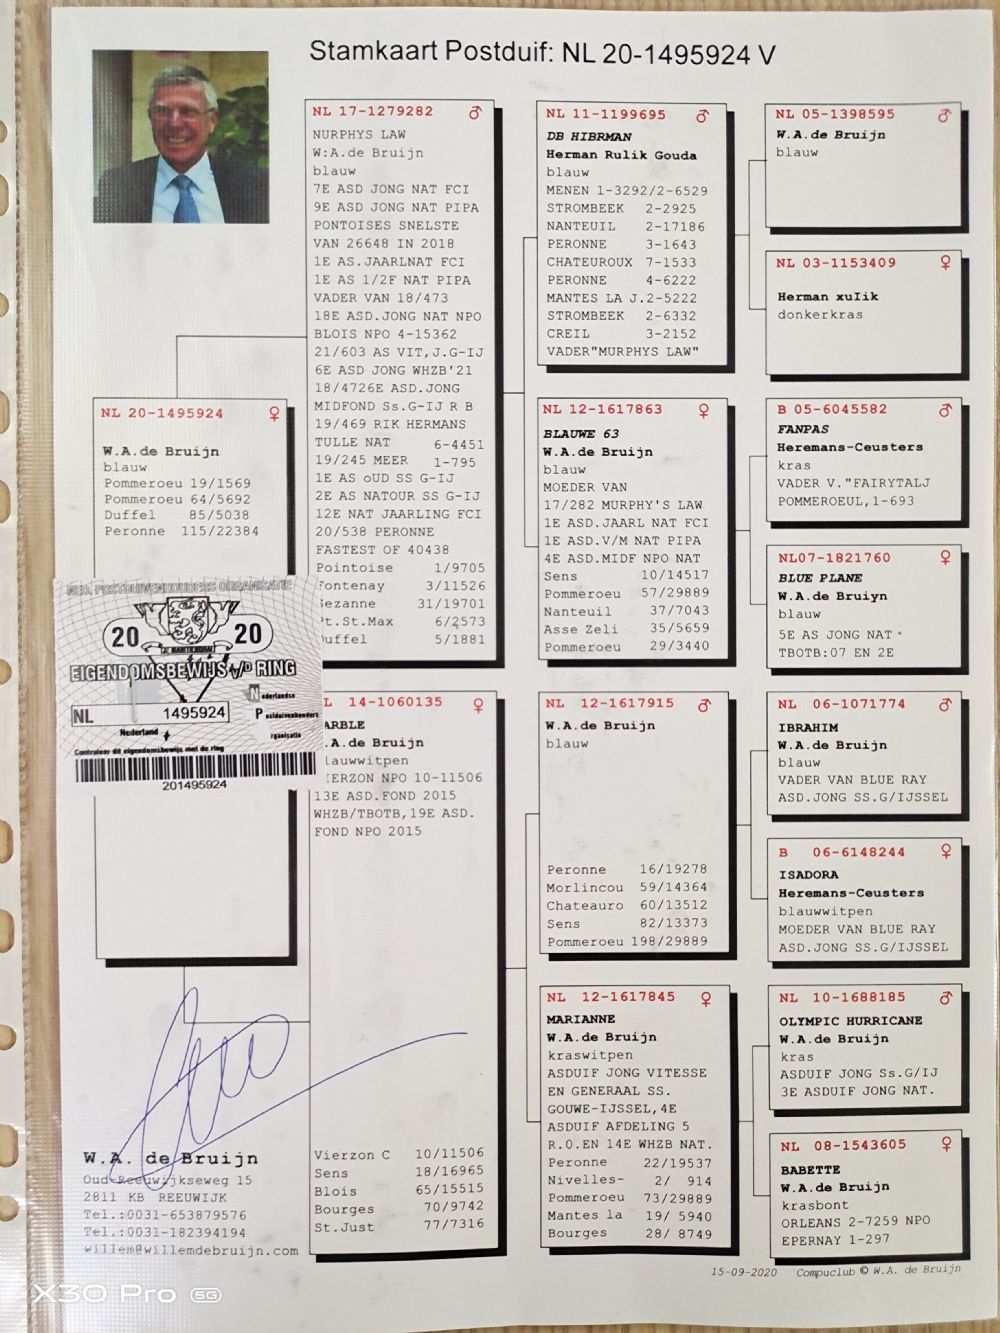 Stamkaart Postduif: NL 20-1495924 V
NL 20-1495924 ♀
W.A.de Bruijn
blauw
Pommeroeu 19/1569
Pommeroeu 64/5692
Duffel 85/5038
Peronne 115/22384
NED. POSTDUIVENHOUDERS ORGANISATIE
20 20
JE MAINTIENDRAI
EIGENDOMSBEWIJS v/d RING
NL 1495924
Nederland
Nederlandse
Postduivenhouders
rganisatie
Controleer dit eigendomsbewijs met de ring
201495924
NL 17-1279282 ♂
NURPHYS LAW
W:A.de Bruijn
blauw
7E ASD JONG NAT FCI
9E ASD JONG NAT PIPA
PONTOISES SNELSTE
VAN 26648 IN 2018
1E AS.JAARLNAT FCI
1E AS 1/2F NAT PIPA
VADER VAN 18/473
18E ASD.JONG NAT NPO
BLOIS NPO 4-15362
21/603 AS VIT,J.G-IJ
6E ASD JONG WHZB'21
18/4726E ASD.JONG
MIDFOND Ss.G-IJ R B
19/469 RIK HERMANS
TULLE NAT 6-4451
19/245 MEER 1-795
1E AS oUD SS G-IJ
2E AS NATOUR SS G-IJ
12E NAT JAARLING FCI
20/538 PERONNE
FASTEST OF 40438
Pointoise 1/9705
Fontenay 3/11526
Bezanne 31/19701
Pt.St.Max 6/2573
uffel 5/1881
L 14-1060135 ♀
ARBLE
.A.de Bruijn
lauwwitpen
IERZON NPO 10-11506
13E ASD.FOND 2015
WHZB/TBOTB,19E ASD.
FOND NPO 2015
Vierzon C 10/11506
Sens 18/16965
Blois 65/15515
Bourges 70/9742
St.Just 77/7316
NL 11-1199695 ♂
DB HIBRMAN
Herman Rulik Gouda
blauw
MENEN 1-3292/2-6529
STROMBEEK 2-2925
NANTEUIL 2-17186
PERONNE 3-1643
CHATEUROUX 7-1533
PERONNE 4-6222
MANTES LA J.2-5222
STROMBEEK 2-6332
CREIL 3-2152
VADER"MURPHYS LAW"
NL 12-1617863 ♀
BLAUWE 63
W.A.de Bruijn
blauw
MOEDER VAN
17/282 MURPHY'S LAW
1E ASD.JAARL NAT FCI
1E ASD.V/M NAT PIPA
4E ASD.MIDF NPO NAT
Sens 10/14517
Pommeroeu 57/29889
Nanteuil 37/7043
Asse Zeli 35/5659
Pommeroeu 29/3440
NL 12-1617915 ♂
W.A.de Bruijn
blauw
Peronne 16/19278
Morlincou 59/14364
Chateauro 60/13512
Sens 82/13373
Pommeroeu 198/29889
NL 12-1617845 ♀
MARIANNE
W.A.de Bruijn
kraswitpen
ASDUIF JONG VITESSE
EN GENERAAL SS.
GOUWE-IJSSEL,4E
ASDUIF AFDELING 5
R.O.EN 14E WHZB NAT.
Peronne 22/19537
Nivelles- 2/ 914
Pommeroeu 73/29889
Mantes la 19/ 5940
Bourges 28/ 8749
NL 05-1398595 ♂
W.A.de Bruijn
blauw
NL 03-1153409 ♀
Herman xuIik
donkerkras
B 05-6045582 ♂
FANPAS
Heremans-Ceusters
kras
VADER V."FAIRYTALJ
POMMEROEUL,1-693
NL07-1821760 ♀
BLUE PLANE
W.A.de Bruiyn
blauw
5E AS JONG NAT
TBOTB:07 EN 2E
NL 06-1071774 ♂
IBRAHIM
W.A.de Bruijn
blauw
VADER VAN BLUE RAY
ASD.JONG SS.G/IJSSEL
B 06-6148244 ♀
ISADORA
Heremans-Ceusters
blauwwitpen
MOEDER VAN BLUE RAY
ASD.JONG SS.G/IJSSEL
NL 10-1688185 ♂
OLYMPIC HURRICANE
W.A.de Bruijn
kras
ASDUIF JONG Ss.G/IJ
3E ASDUIF JONG NAT.
NL 08-1543605 ♀
BABETTE
W.A.de Bruijn
krasbont
ORLEANS 2-7259 NPO
EPERNAY 1-297
W.A. de Bruijn
Oud-Reeuwijkseweg 15
2811 KB REEUWIJK
Tel.:0031-653879576
Tel.:0031-182394194
willem@willemdebruijn.com
15-09-2020 Compuclub © W.A. de Bruijn
X30 Pro 5G